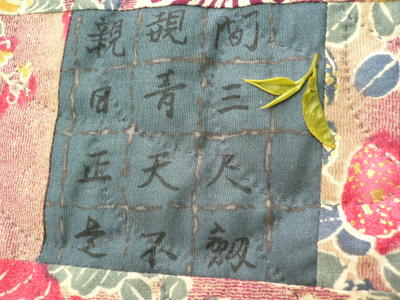 間三尺劔
覩青天不
親日正是